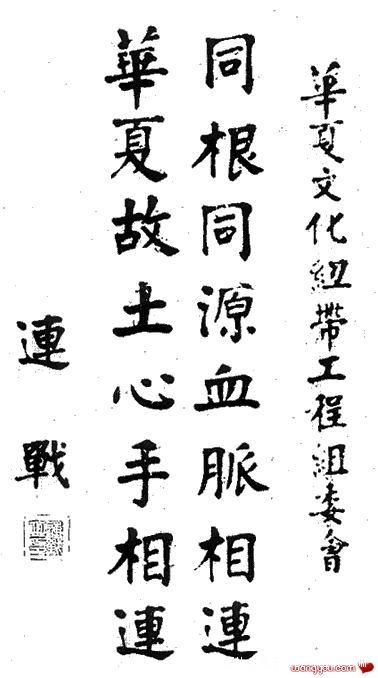 華夏文化紐帶工程組委會
同根同源血脈相連
華夏故土心手相連
連戰
wangyou.com